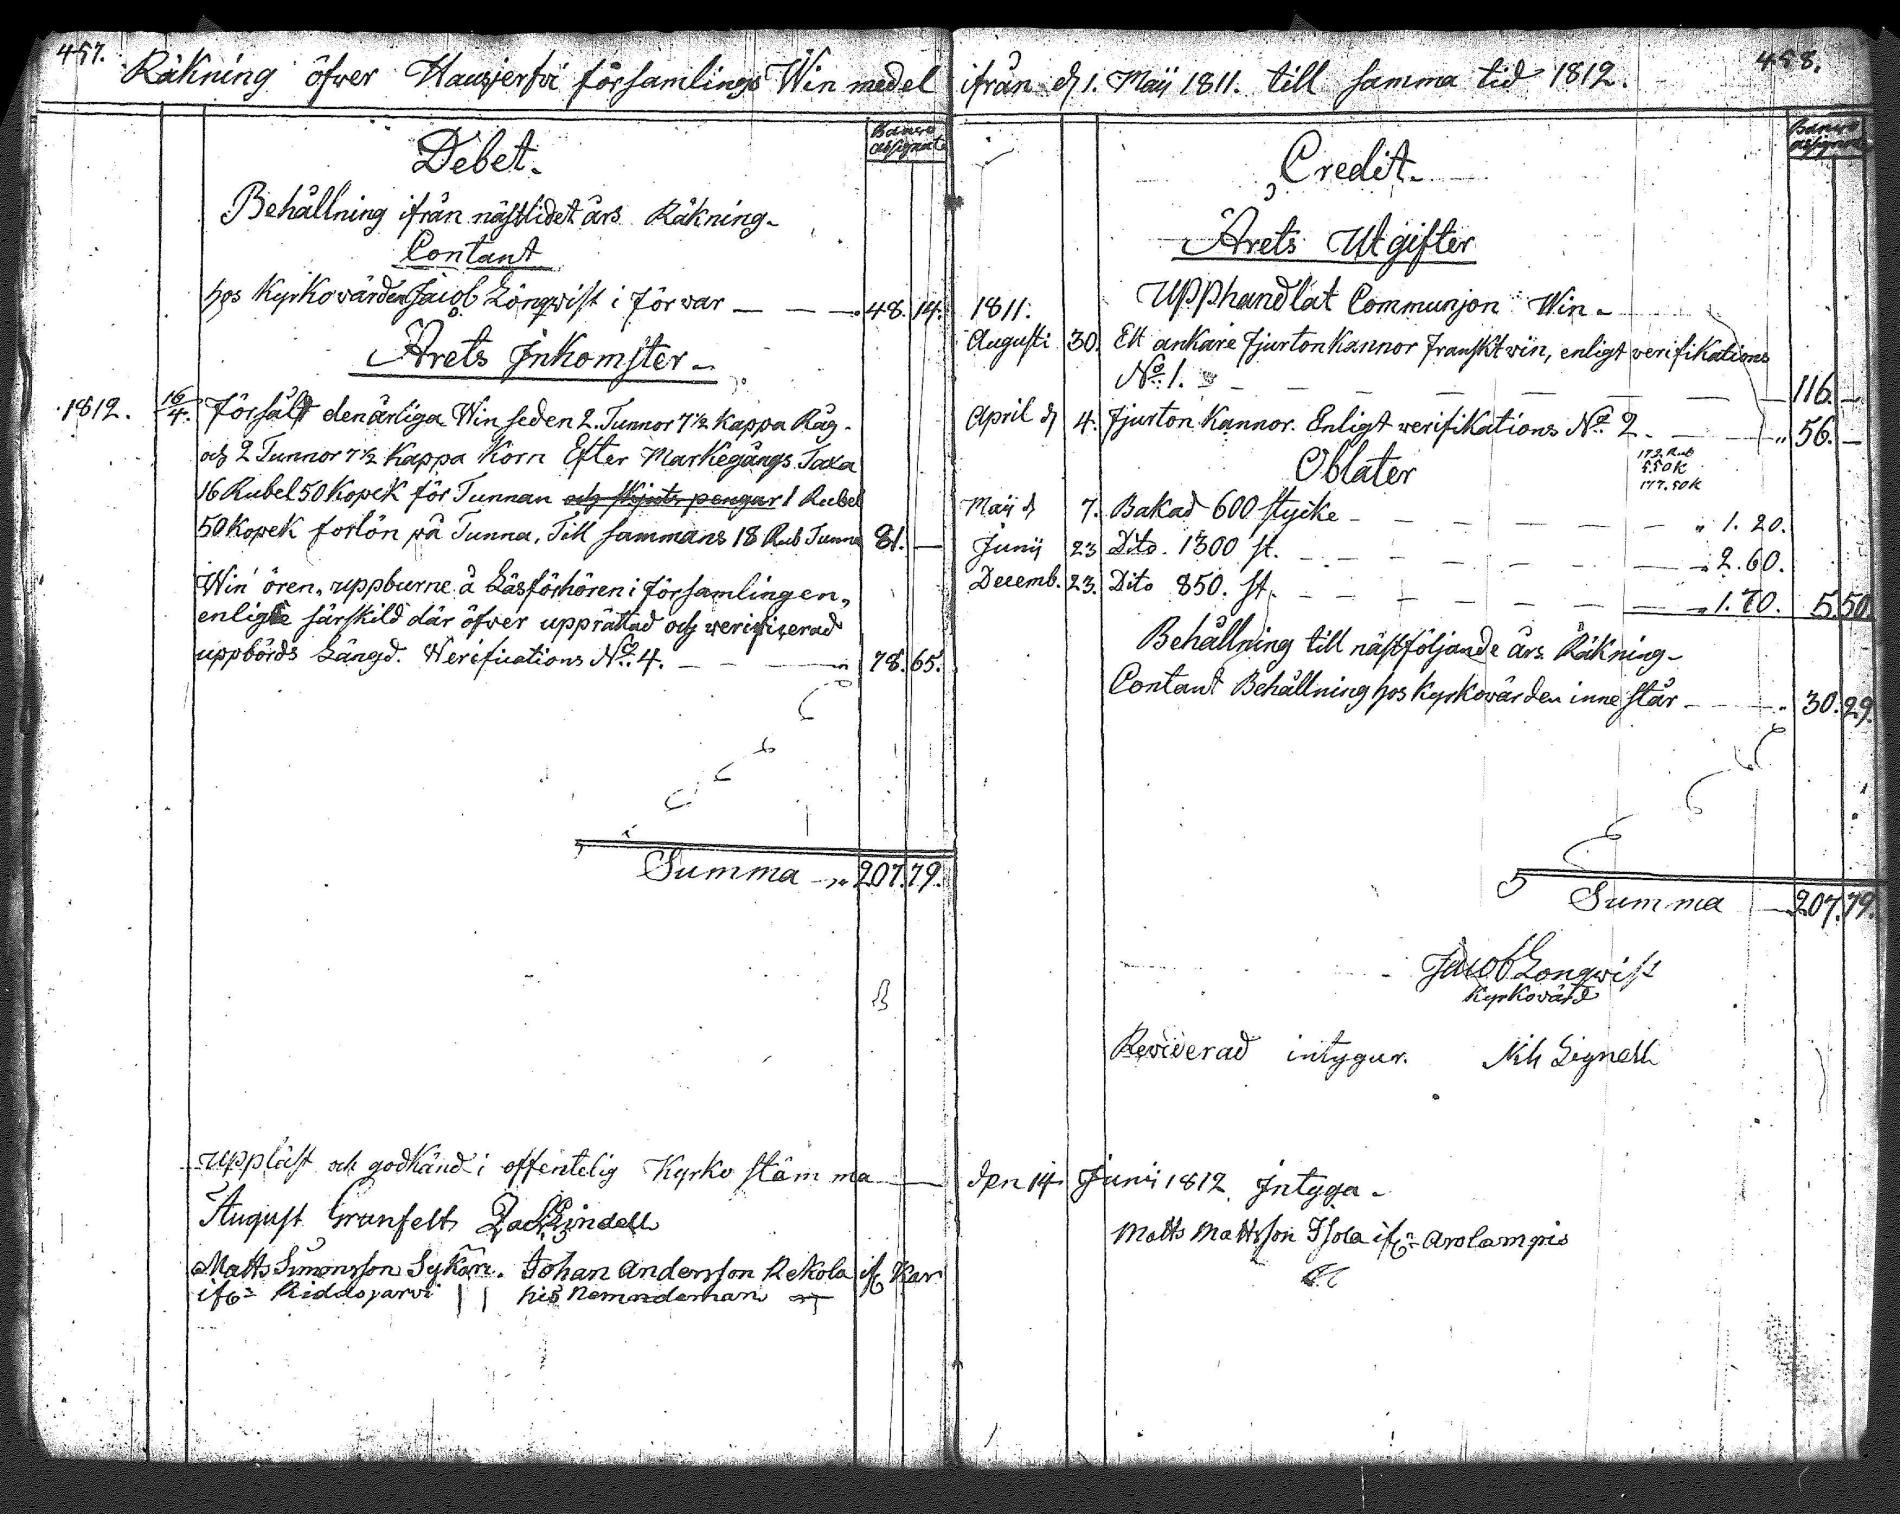 457.
Räkning öfver Hausjerfvi församlings Win medel
Debet.
Banco assignat
Behållning ifrån nästlidet års Räkning.
Contant
hos Kyrkovärden Jacob Löngwist i förvar — — — 48. 14.
Årets Inkomster.
1812. 16/4. försålt den årliga Win seden 2. Tunnor 7½ Kappa Råg.
och 2 Tunnor 7½ Kappa Korn Efter Markegångs Taxa
16 Rubel 50 Kopek för Tunnan och skjuts pengar 1 Rubel
50 Kopek forlön på Tunna, Till sammans 18 Rub Tunna 81. —
Win ören, uppburne å Läsförhören i församlingen,
enligt särskild där öfver upprättad och verificerad
uppbörds Längd. Verifications No. 4. — — — 78. 65.
Summa 207. 79.
Uppläst och godkänd i offentelig Kyrko stämma
August Granfelt
Matts Simonsson Sykäri. Johan Andersson Rekola if. Kar
if. Riddojarvi his nemndeman
458.
ifrån d. 1. Maij 1811. till samma tid 1812.
Credit.
Banco assignat
Årets Utgifter
Upphandlat Communjon Win.
1811.
Augusti 30. Ett ankare fjurton Kannor franskt vin, enligt verifikations
No. 1. — — — 116. —
April d. 4. fjurton Kannor. Enligt verifikations No. 2. — — 56. —
Oblater
172. Rub
5 50 K
177. 50 K
Maij d. 7. Bakad 600 stycke — — — 1. 20.
Junij 23 Dito. 1300 st. — — — 2. 60.
Decemb. 23. Dito 850. st. — — — 1. 70. 5. 50.
Behållning till nästföljande års Räkning.
Contant Behållning hos Kyrkovärden inne står — — 30. 29.
Summa 207. 79.
Jacob Longwist
Kyrkovärd
Reviderad intygar. Nils Lignell
den 14 Junii 1812 Intyga.
Matts Mattsson Isola if. Arolampis